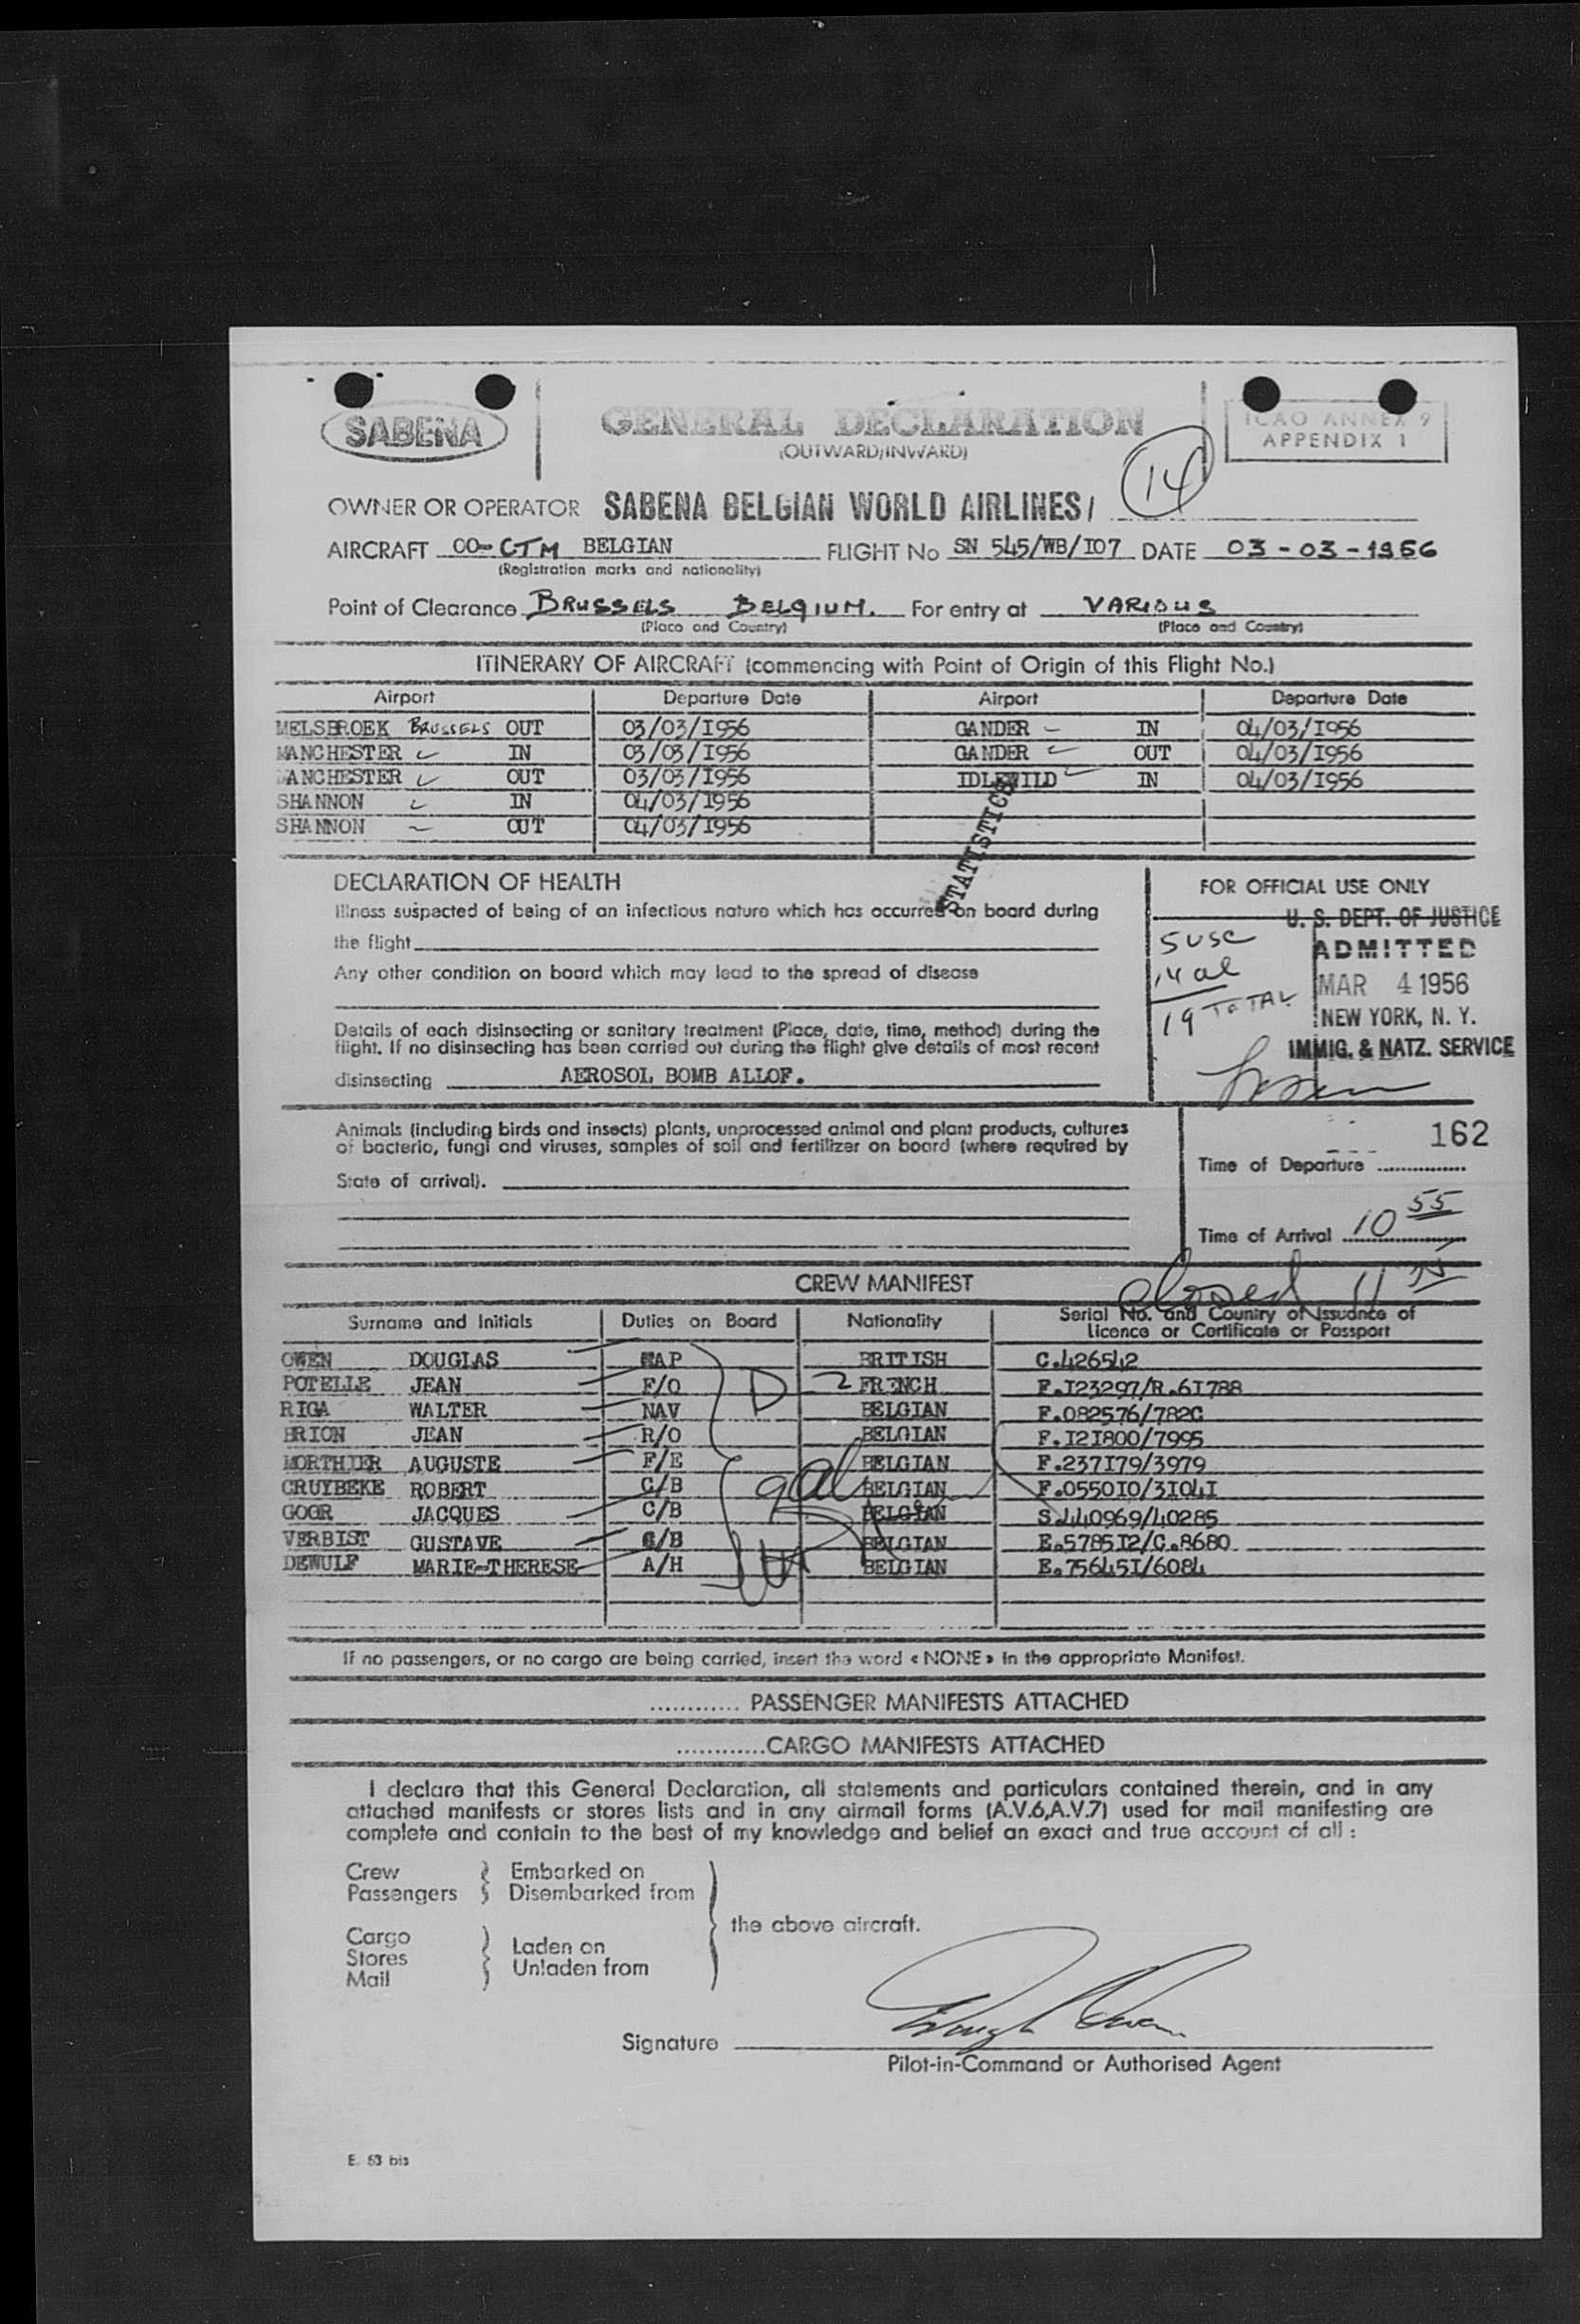 SABENA
GENERAL DECLARATION
(OUTWARD/INWARD)
ICAO ANNEX 9
APPENDIX 1
14
OWNER OR OPERATOR SABENA BELGIAN WORLD AIRLINES/
AIRCRAFT OO-CTM BELGIAN FLIGHT No SN 545/WB/I07 DATE 03-03-1956
(Registration marks and nationality)
Point of Clearance BRUSSELS BELGIUM. For entry at VARIOUS
(Place and Country) (Place and Country)
ITINERARY OF AIRCRAFT (commencing with Point of Origin of this Flight No.)
Airport Departure Date Airport Departure Date
MELSBROEK BRUSSELS OUT 03/03/I956 GANDER IN 04/03/I956
MANCHESTER IN 03/03/I956 GANDER OUT 04/03/I956
MANCHESTER OUT 03/03/I956 IDLEWILD IN 04/03/I956
SHANNON IN 04/03/I956
SHANNON OUT 04/03/I956
STATISTICS
DECLARATION OF HEALTH
Illness suspected of being of an infectious nature which has occurred on board during
the flight
Any other condition on board which may lead to the spread of disease
Details of each disinsecting or sanitary treatment (Place, date, time, method) during the
flight. If no disinsecting has been carried out during the flight give details of most recent
disinsecting AEROSOL BOMB ALLOF.
FOR OFFICIAL USE ONLY
U. S. DEPT. OF JUSTICE
ADMITTED
MAR 4 1956
NEW YORK, N. Y.
IMMIG. & NATZ. SERVICE
5 USC
14 al
19 TOTAL
Animals (including birds and insects) plants, unprocessed animal and plant products, cultures
of bacteria, fungi and viruses, samples of soil and fertilizer on board (where required by
State of arrival).
162
Time of Departure
Time of Arrival 10 55
closed 11
CREW MANIFEST
Surname and Initials Duties on Board Nationality Serial No. and Country of Issuance of
Licence or Certificate or Passport
OWEN DOUGLAS CAP BRITISH C.426542
POTELLE JEAN F/O 2 FRENCH F.I23297/R.6I788
RIGA WALTER NAV BELGIAN F.082576/782C
BRION JEAN R/O BELGIAN F.I2I800/7995
MORTHIER AUGUSTE F/E BELGIAN F.237I79/3979
CRUYBEKE ROBERT C/B BELGIAN F.0550I0/3I04I
GOOR JACQUES C/B BELGIAN S.440969/40285
VERBIST GUSTAVE C/B BELGIAN E.5785I2/C.8680
DEWULF MARIE-THERESE A/H BELGIAN E.75645I/6084
D
If no passengers, or no cargo are being carried, insert the word « NONE » in the appropriate Manifest.
............ PASSENGER MANIFESTS ATTACHED
............CARGO MANIFESTS ATTACHED
I declare that this General Declaration, all statements and particulars contained therein, and in any
attached manifests or stores lists and in any airmail forms (A.V.6,A.V.7) used for mail manifesting are
complete and contain to the best of my knowledge and belief an exact and true account of all :
Crew Embarked on
Passengers Disembarked from
the above aircraft.
Cargo
Stores Laden on
Mail Unladen from
Signature
Pilot-in-Command or Authorised Agent
E. 53 bis